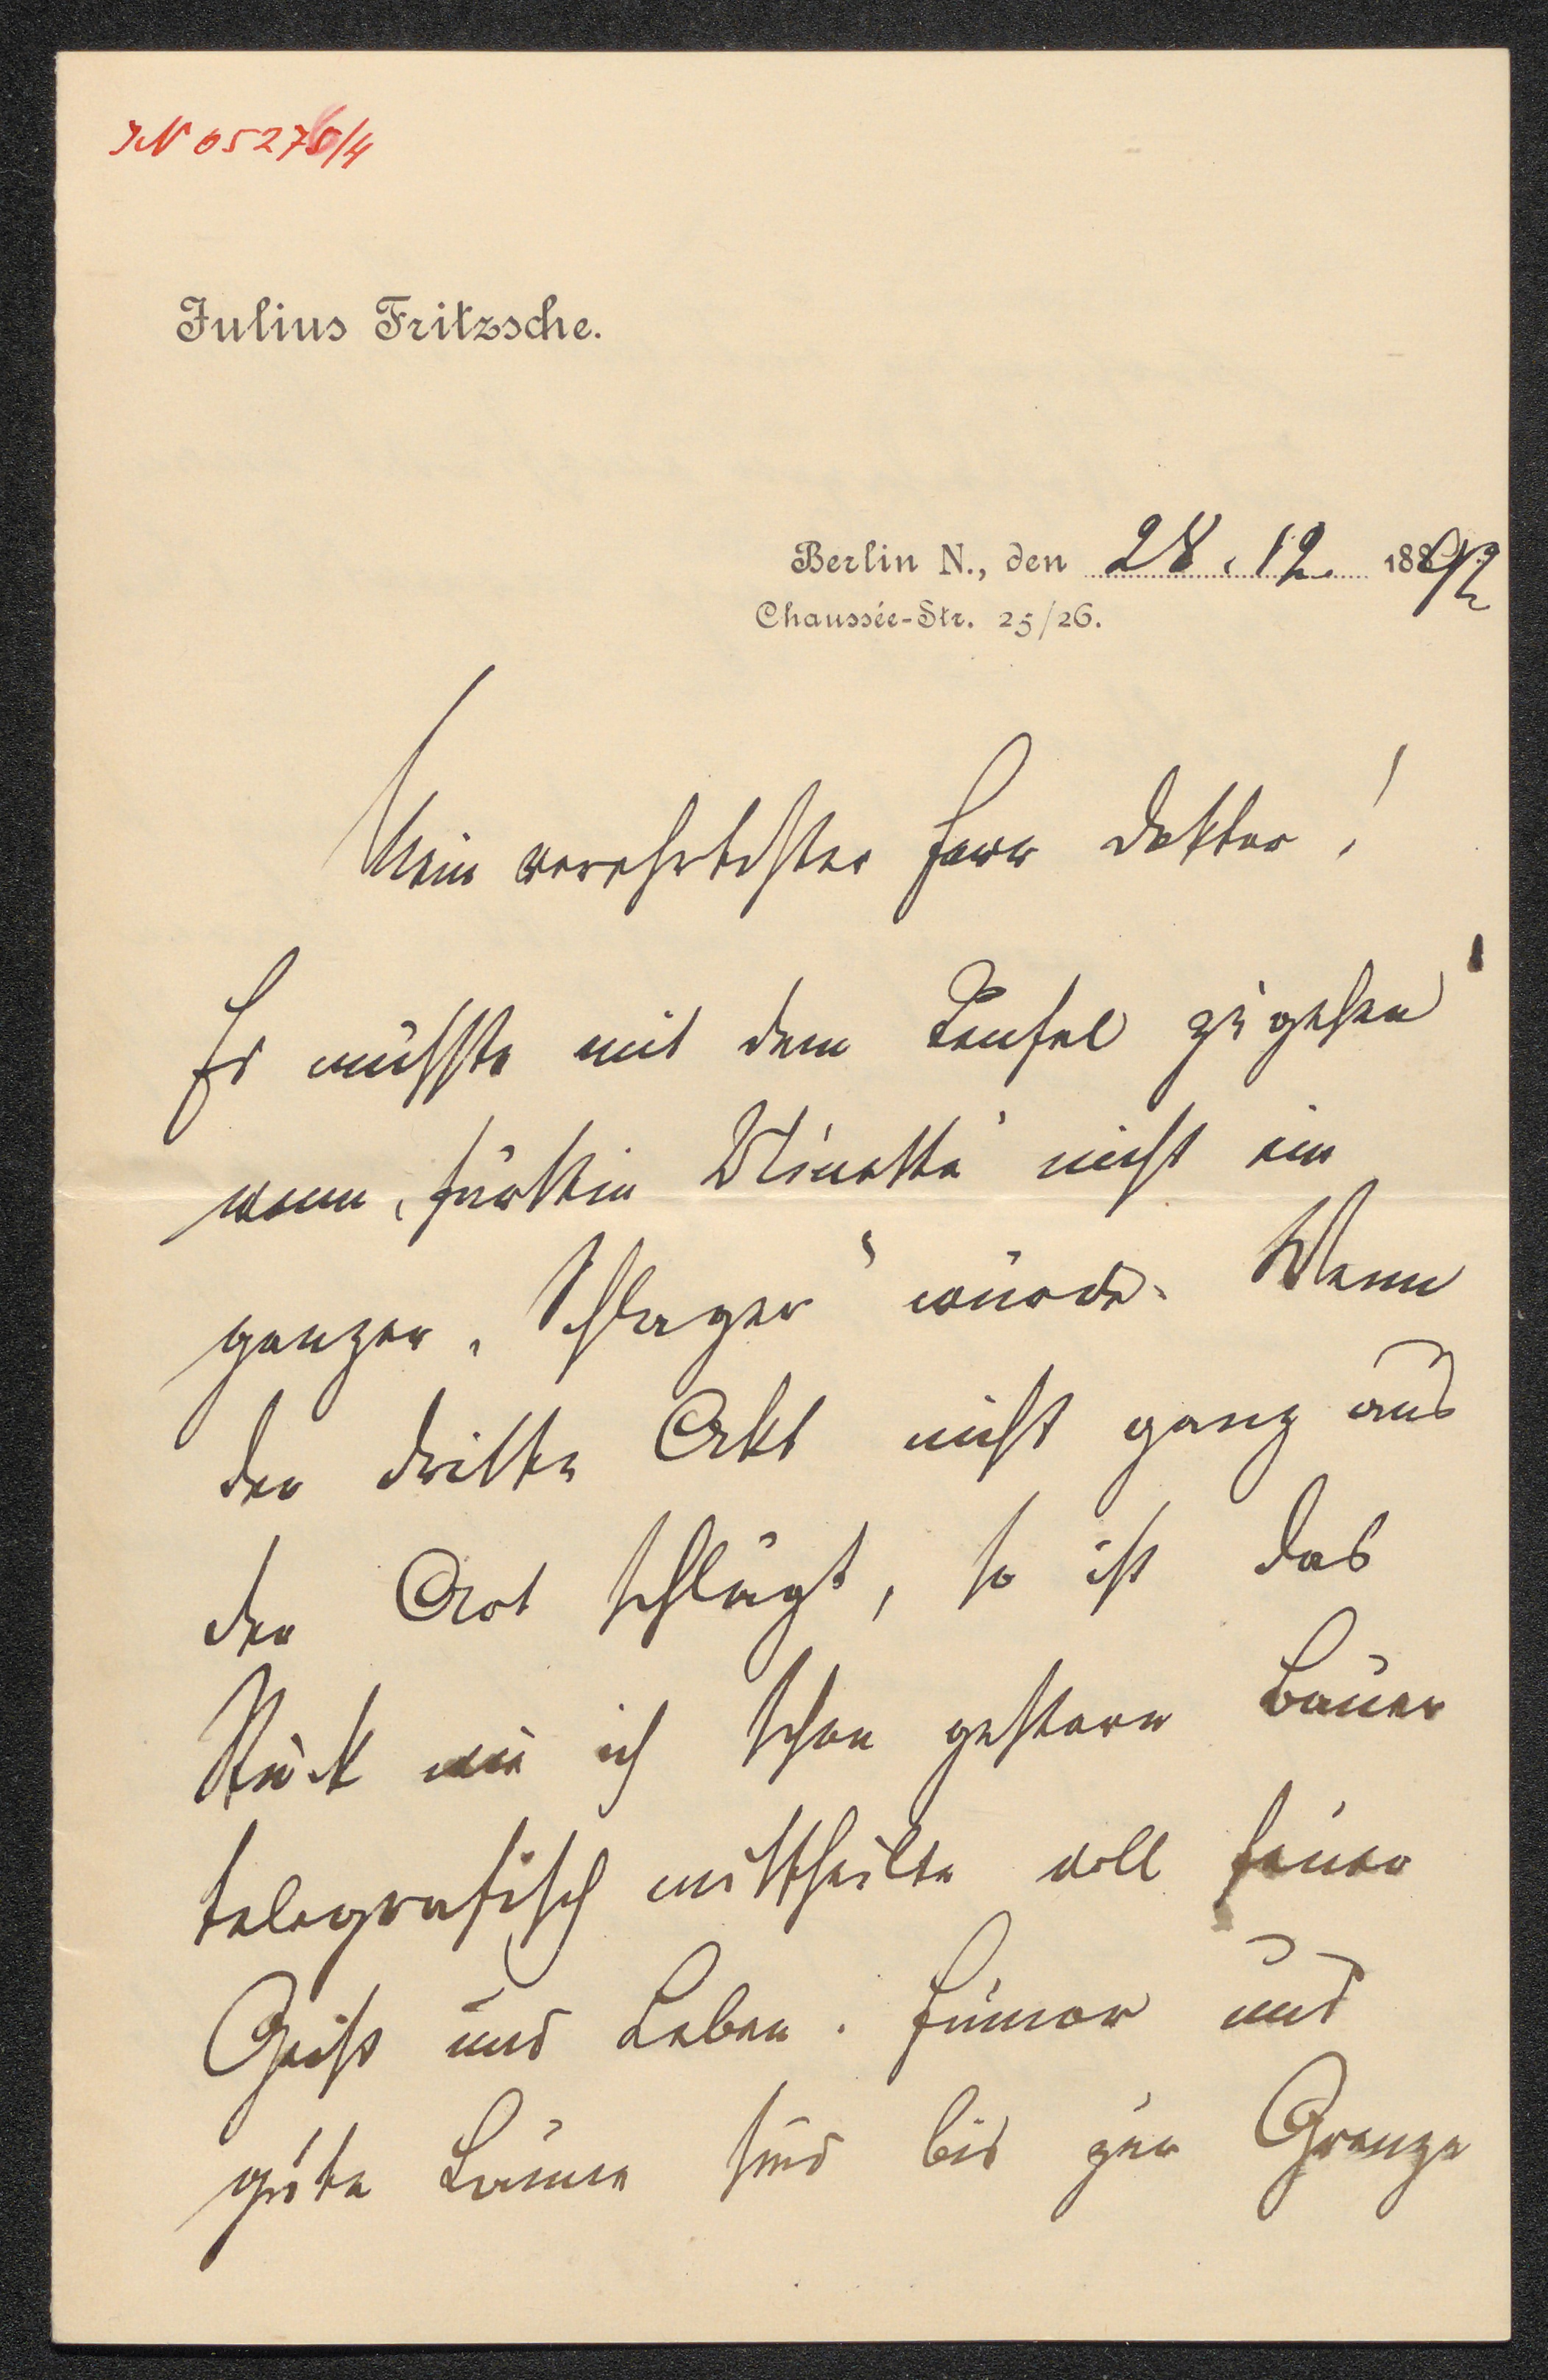 JN 65276/4
Julius Fritzsche.
Berlin N., den 28. 12. 1892
Chaussée-Str. 25/26.
Mein verehrtester Herr Doktor!
Es müsste mit dem Teufel zugehen
wenn „Fürstin Ninetta" nicht ein
ganzer „Schlager" würde. Wenn
der dritte Akt nicht ganz aus
der Art schlägt, so ist das
Stück wie ich schon gestern Bauer
telegrafisch mittheilte voll feiner
Geist und Leben. Humor und
gute Laune sind bis zur Grenze